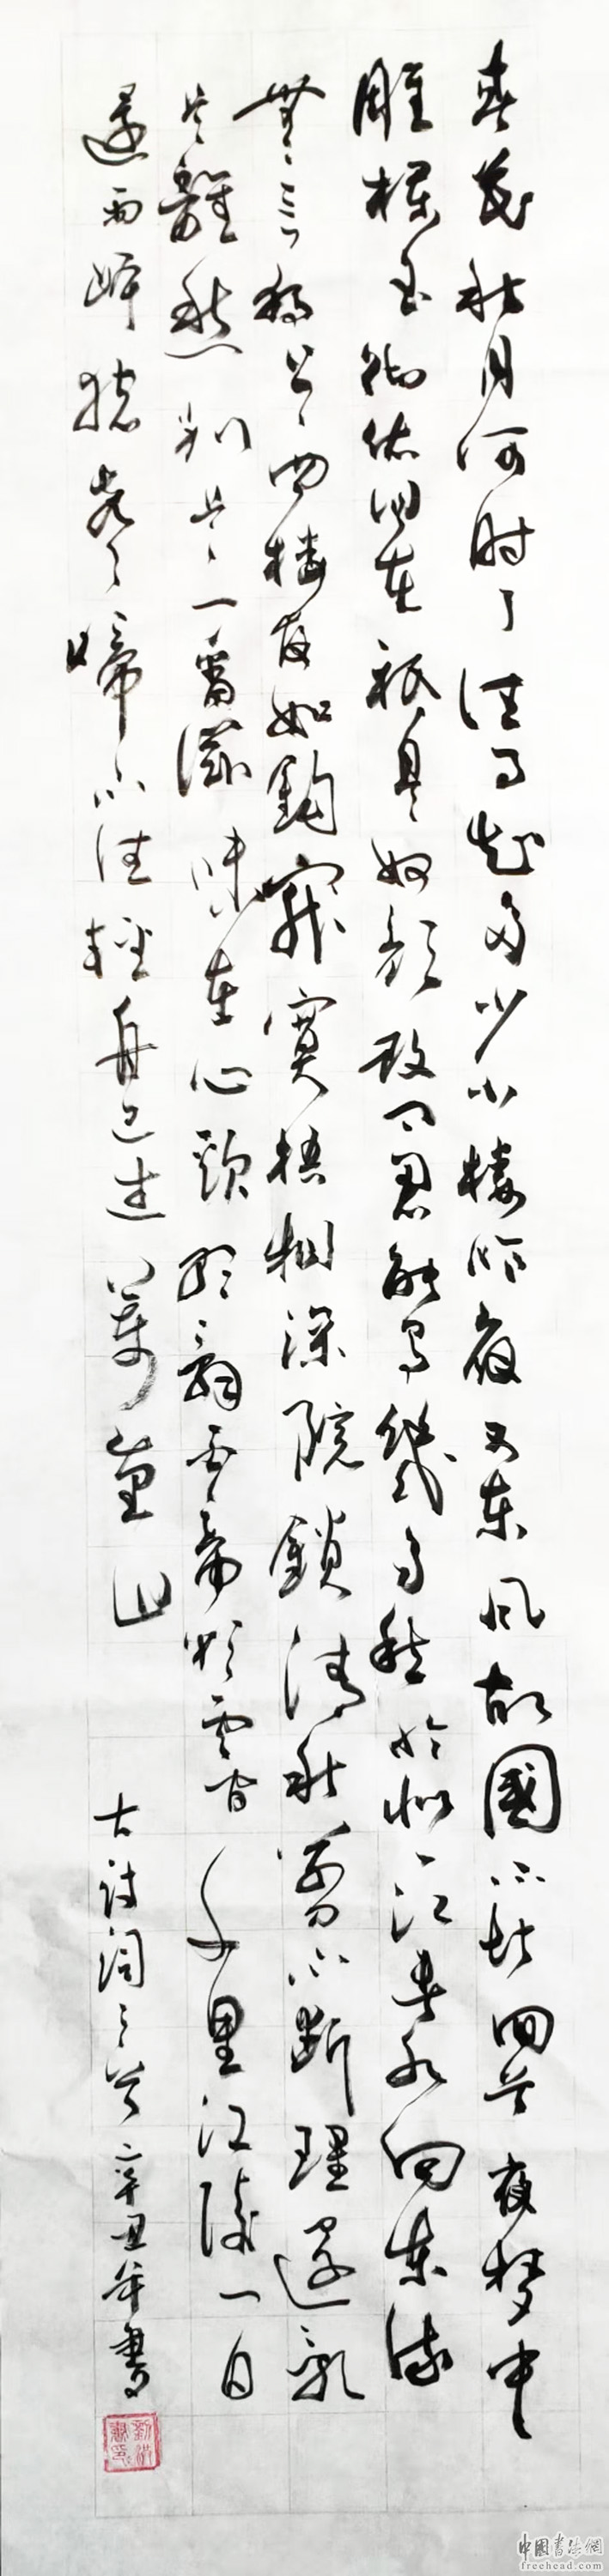 春花秋月何时了往事知多少小楼昨夜又東風故國不堪回首夜梦中
雕欄玉砌依旧在祇是奴颜改问君能有幾多愁恰似一江春水向東流
無言独上西楼月如鈎寂寞梧桐深院鎖清秋剪不断理還亂
是離愁别是一番滋味在心頭朝辞白帝彩雲间千里江陵一日
還两岸猿声啼不住輕舟已过萬重山 古诗词三首 辛丑年書
中國書法網
freehead.com